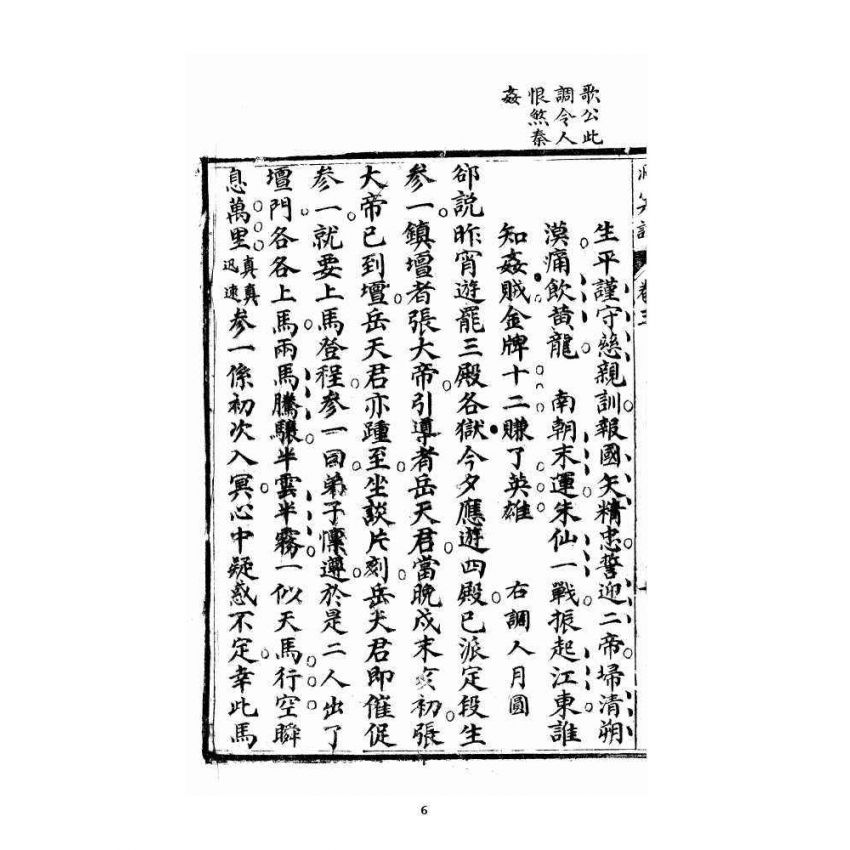 歌公此
調令人
恨煞秦
姦
洞冥記 卷三
生平謹守慈親訓報國矢精忠誓迎二帝埽清朔
漠痛飲黃龍 南朝末運朱仙一戰振起江東誰
知姦賊金牌十二賺了英雄 右調人月圓
郤說昨宵遊罷三殿各獄今夕應遊四殿已派定段生
参一鎮壇者張大帝引導者岳天君當晚戌末亥初張
大帝已到壇岳天君亦踵至坐談片刻岳天君即催促
参一就要上馬登程参一回弟子懍遵於是二人出了
壇門各各上馬兩馬騰驤半雲半霧一似天馬行空瞬
息萬里真真迅速参一係初次入冥心中疑惑不定幸此馬
6